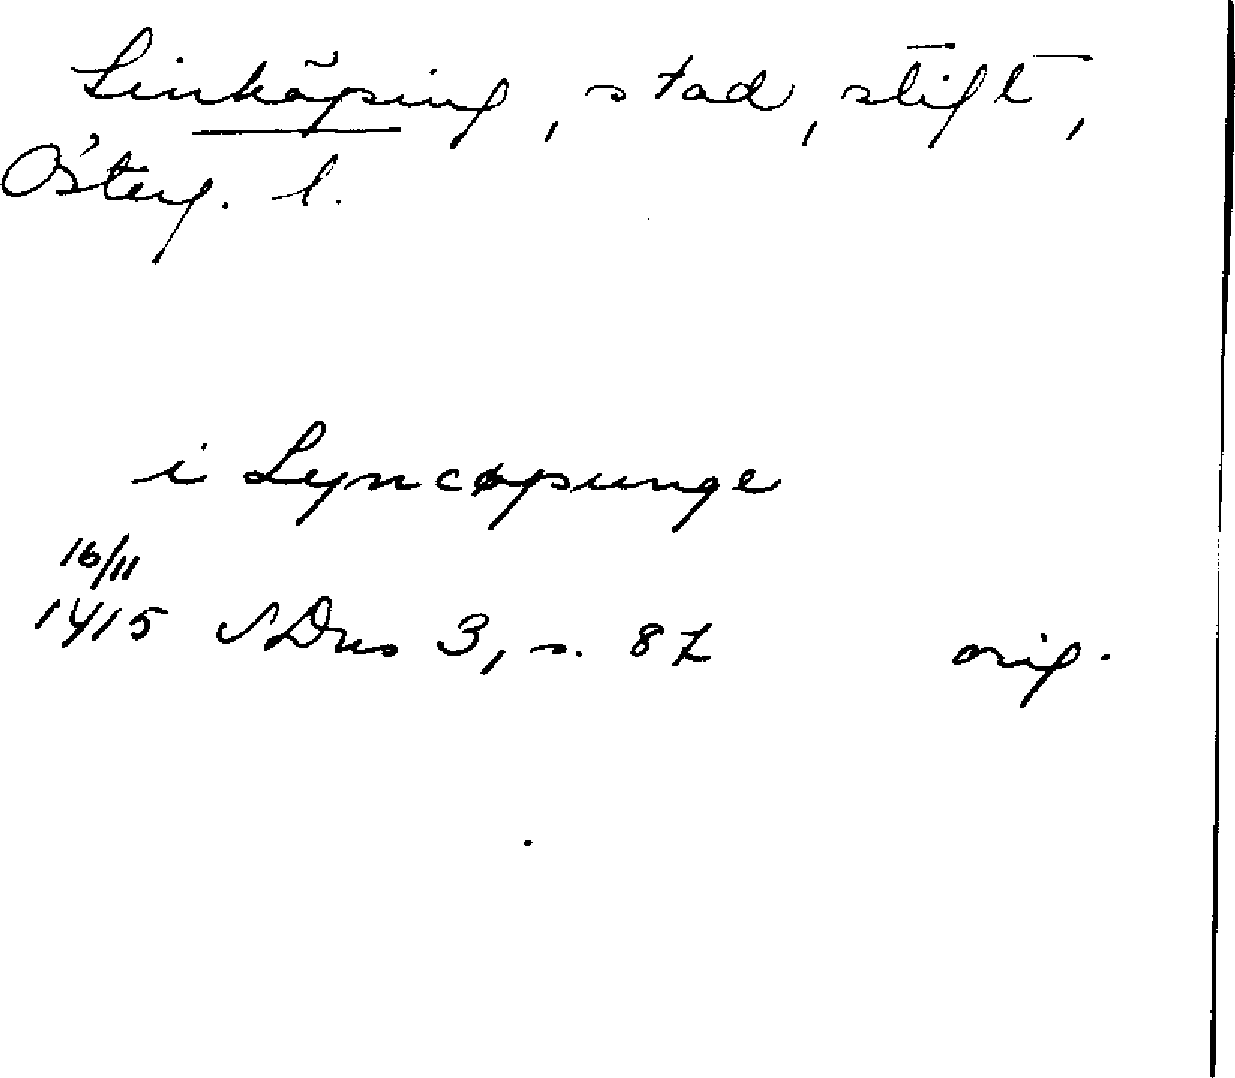 Linköping, stad, stift,
Österg. l.
i Lyncøpunge
16/11
1415 SDns 3, s. 87 orig.